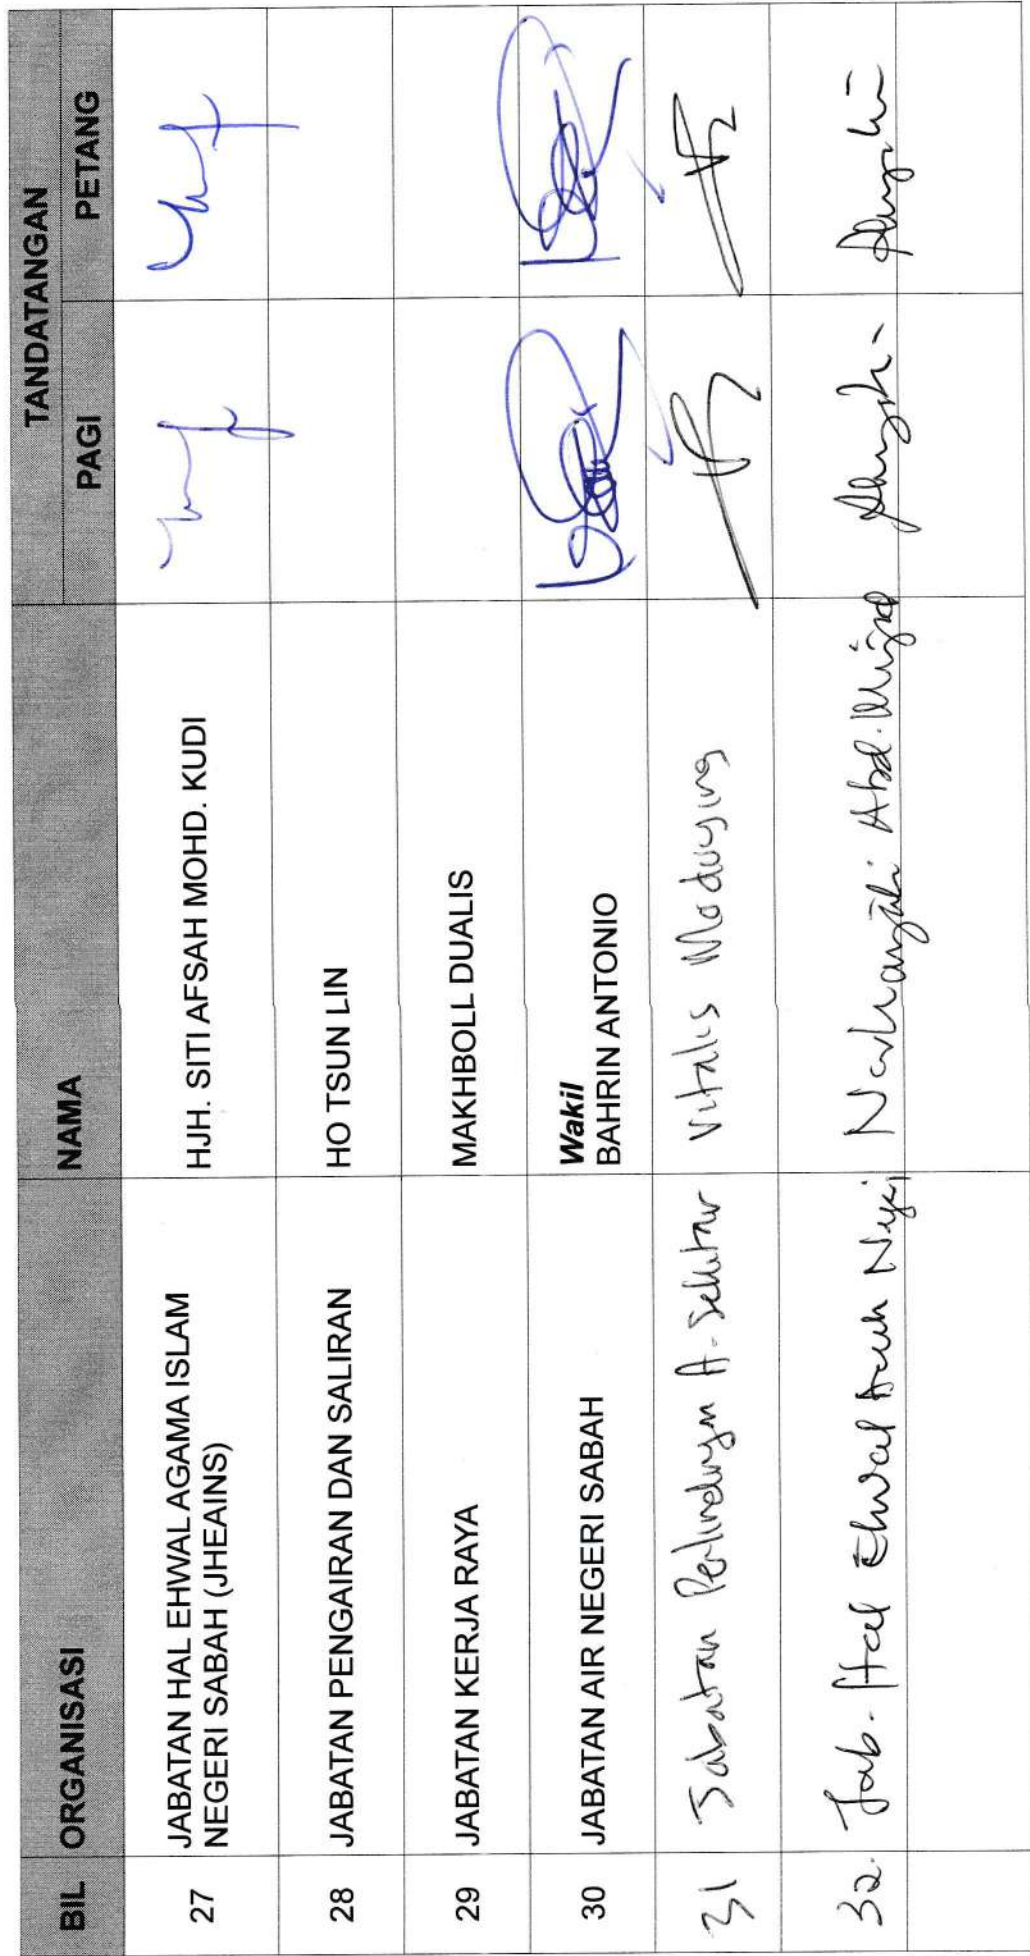 BIL ORGANISASI NAMA TANDATANGAN
PAGI PETANG
27 JABATAN HAL EHWAL AGAMA ISLAM NEGERI SABAH (JHEAINS) HJH. SITI AFSAH MOHD. KUDI
28 JABATAN PENGAIRAN DAN SALIRAN HO TSUN LIN
29 JABATAN KERJA RAYA MAKHBOLL DUALIS
30 JABATAN AIR NEGERI SABAH Wakil
BAHRIN ANTONIO
31 Jabatan Perlindungan A. Sekitar Vitalis Moduying
32. Jab. Hal Ehwal Anak Negeri Abd.